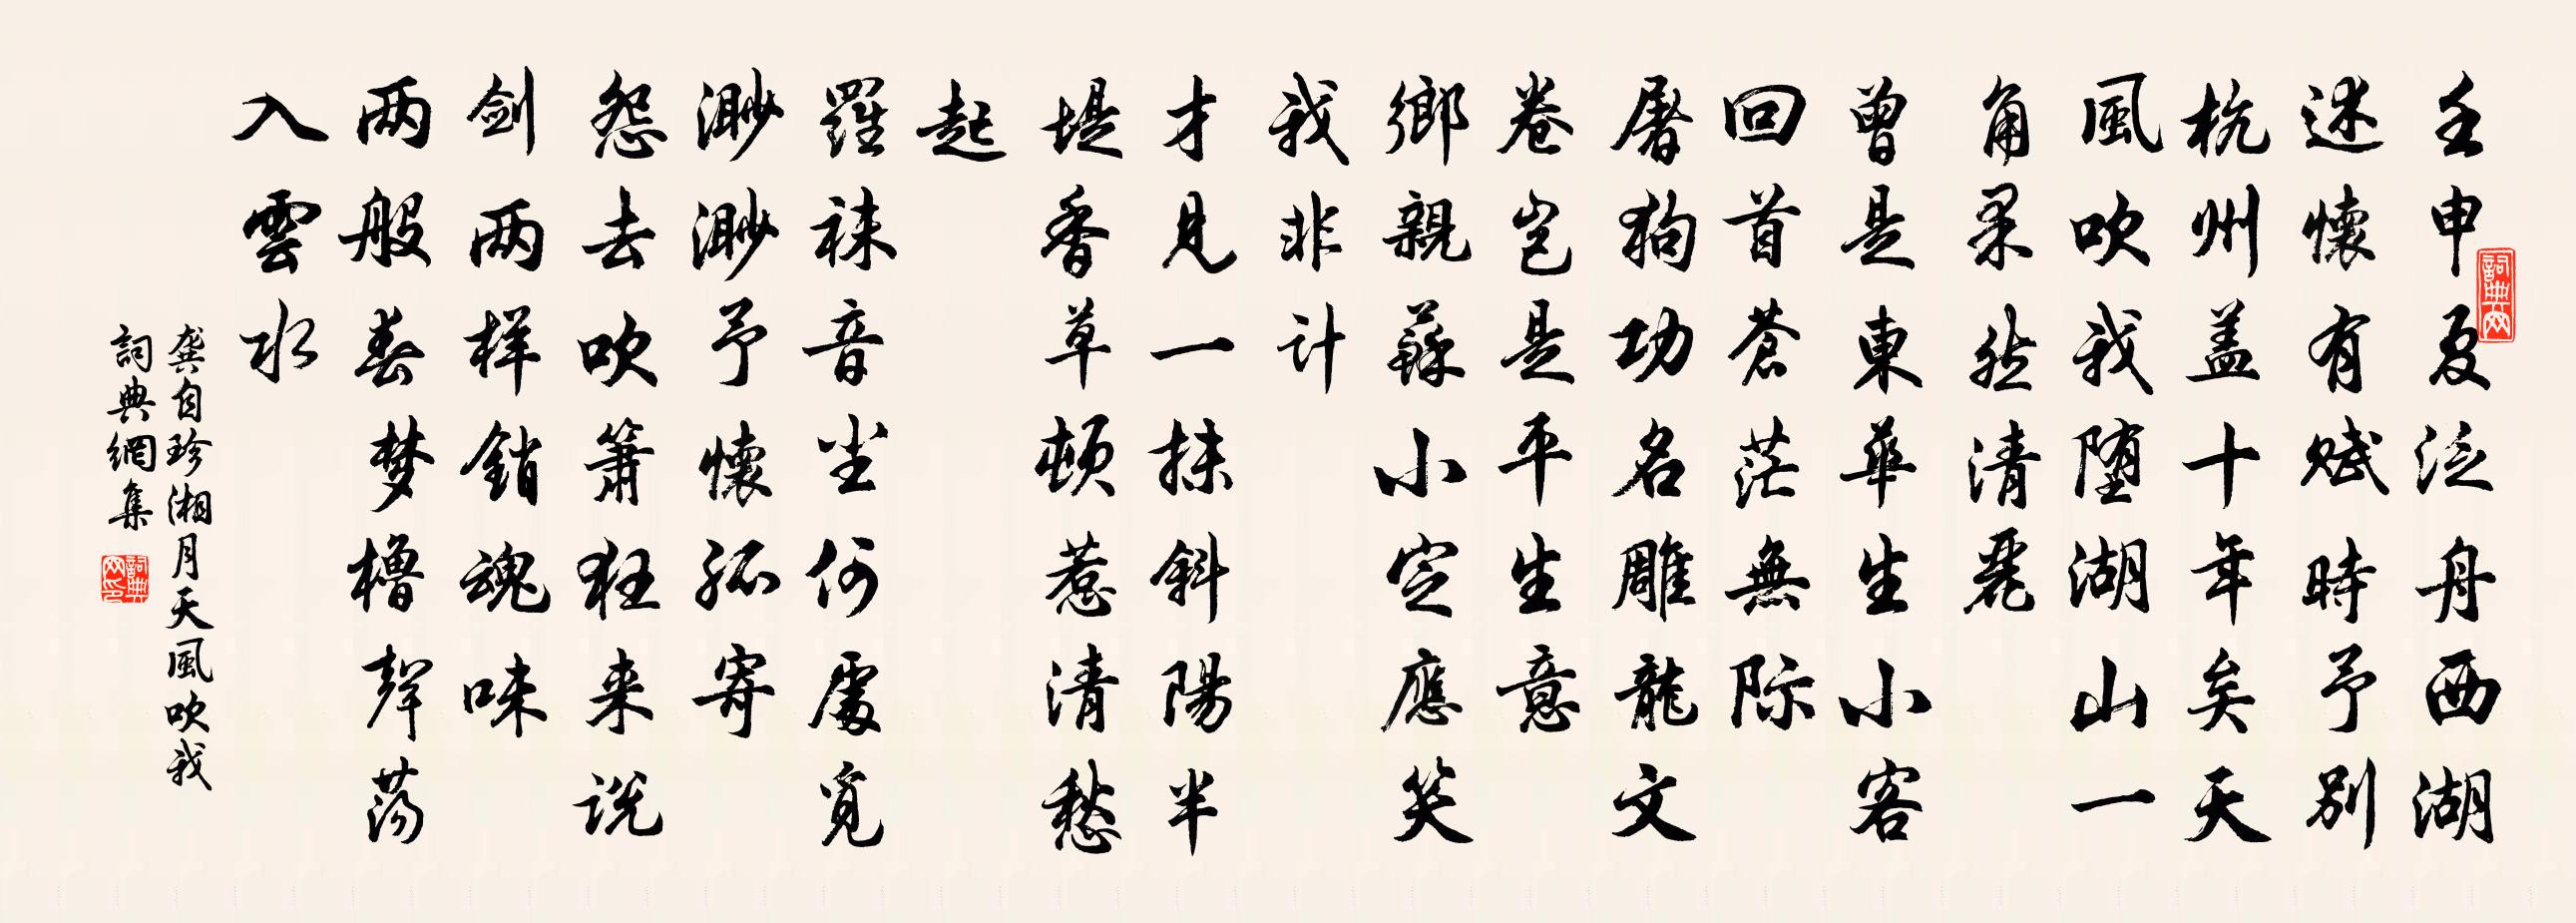 壬申夏泛舟西湖
述懷有赋時予别
杭州盖十年矣天
風吹我堕湖山一
角果然清麗
曾是東華生小客
回首蒼茫無际
屠狗功名雕龍文
卷岂是平生意
鄉親蘇小定應笑
我非计
才見一抹斜陽半
堤香草顿惹清愁
起
羅袜音尘何處覓
渺渺予懷孤寄
怨去吹簫狂来说
剑两样銷魂味
两般春梦橹聲荡
入雲水
龚自珍湘月天風吹我
詞典網集
詞典网
詞典网印